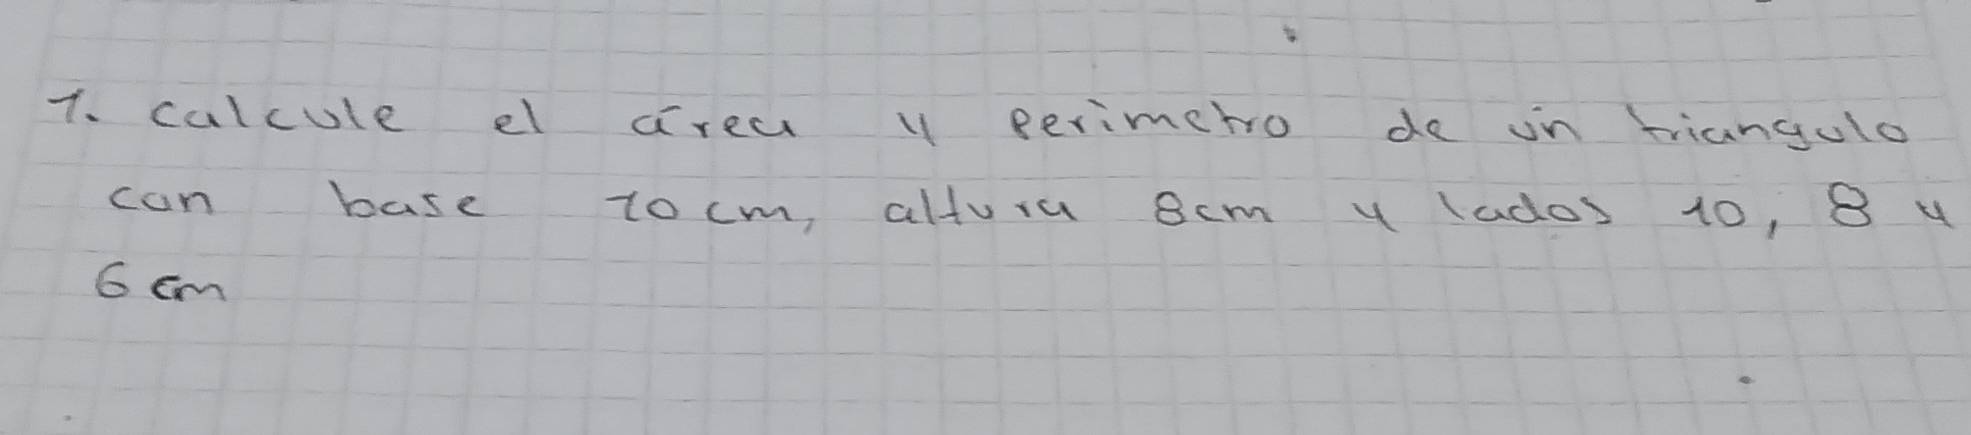 1. calcule el área y perimetro de un triangulo
con base 10 cm, altura 8cm y lados 10, 8 y
6 cm